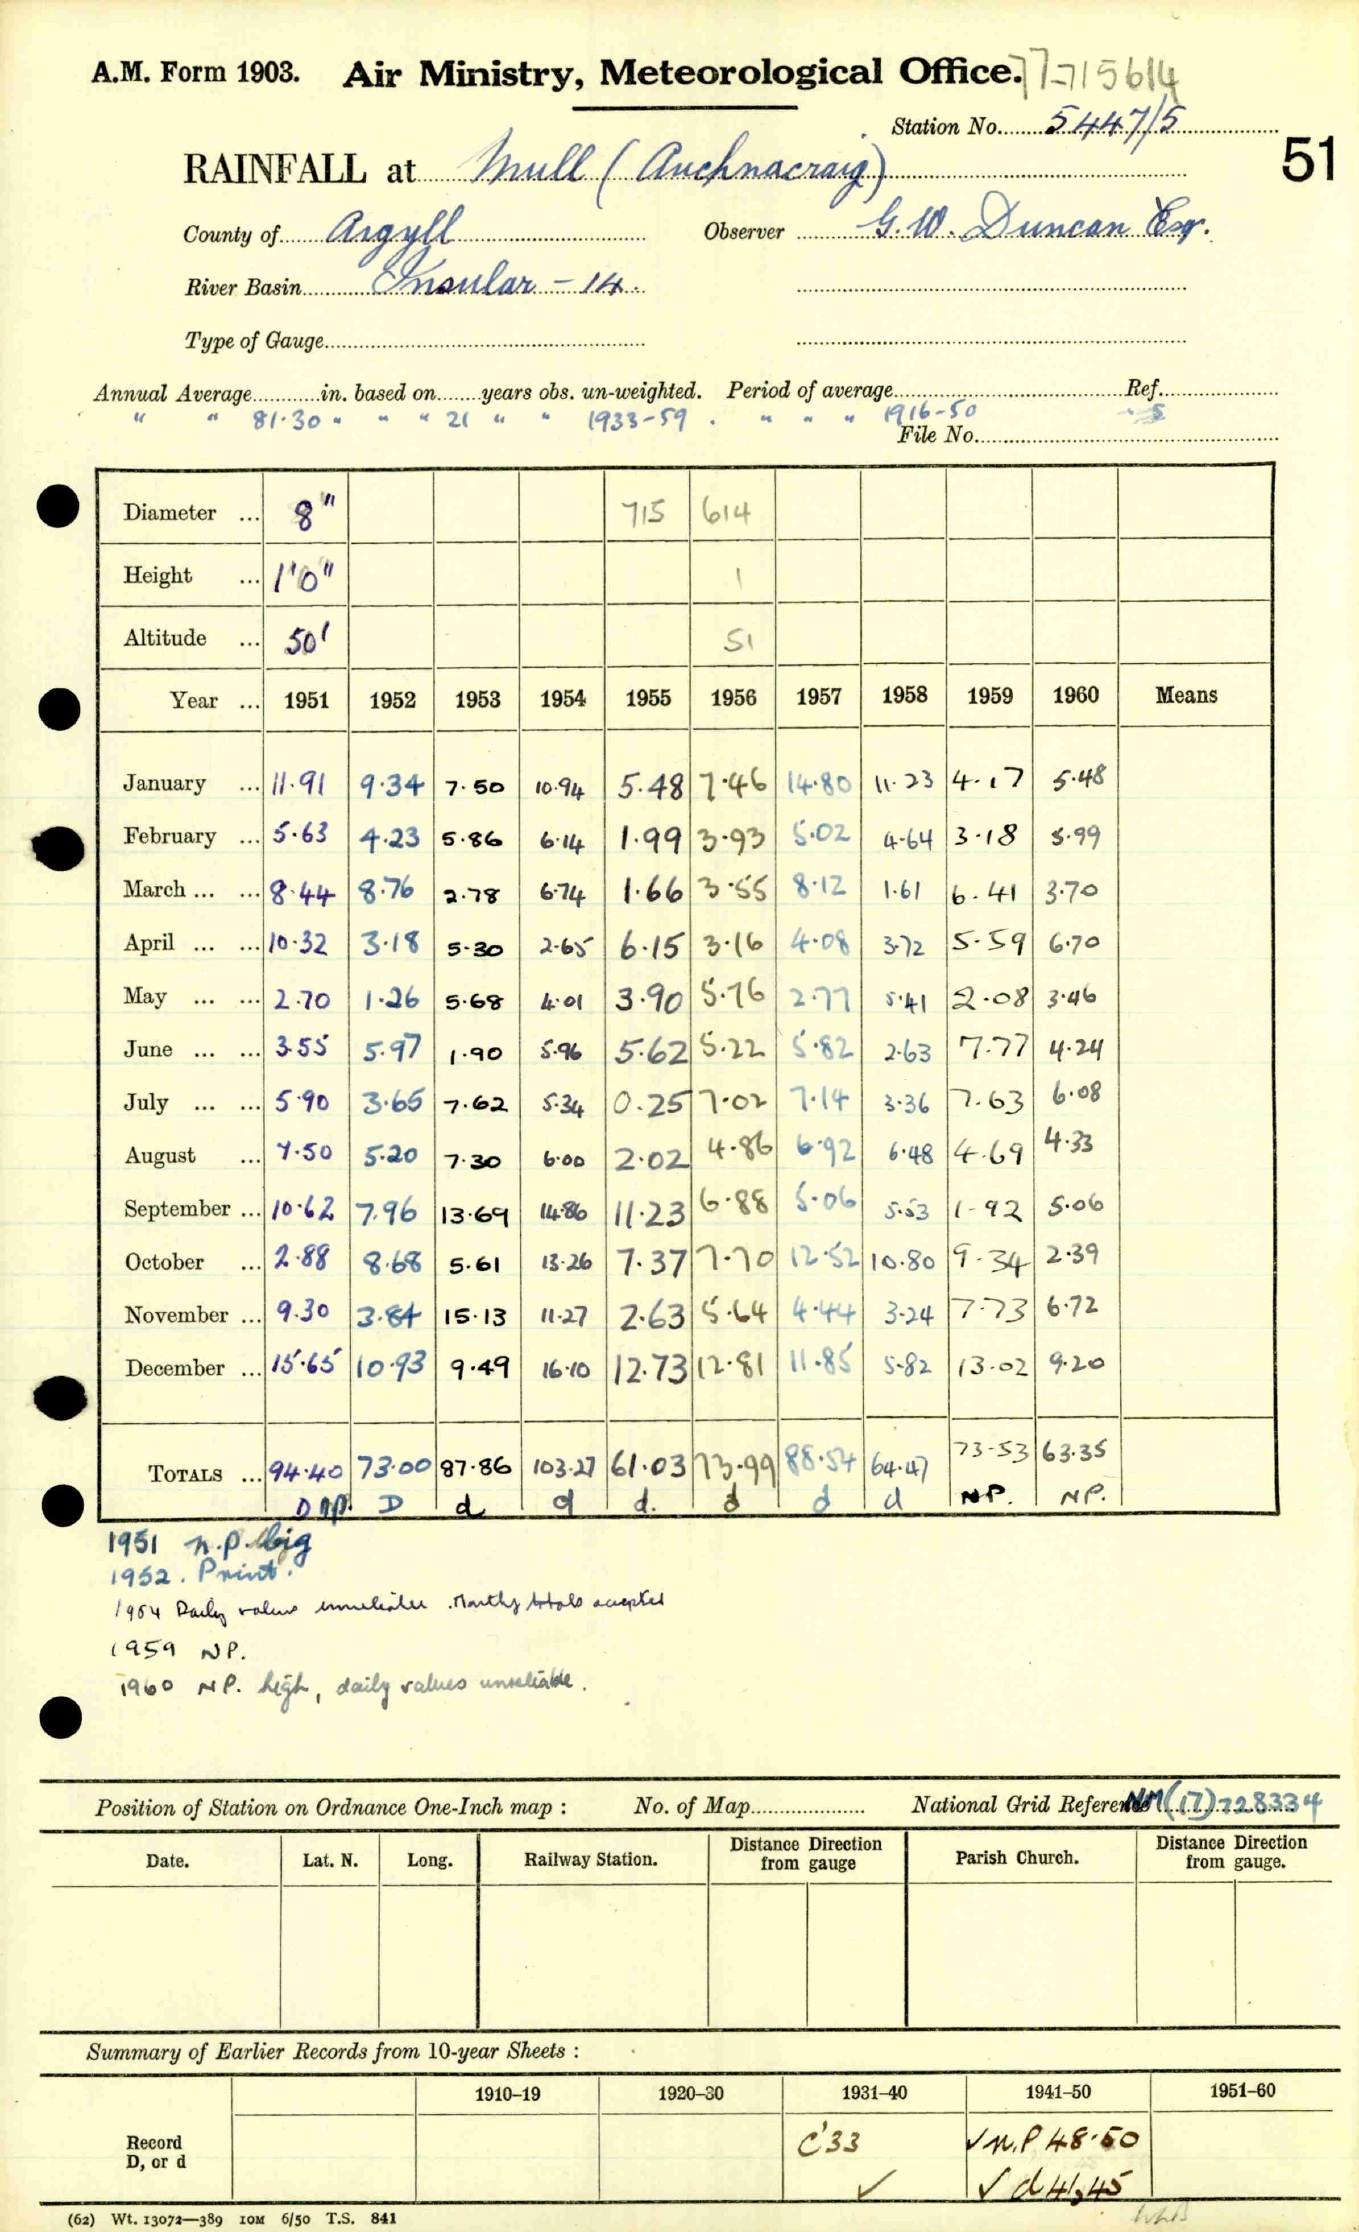 A.M. Form 1903. Air Ministry, Meteorological Office. 77-715614
Station No. 5447/5
51
RAINFALL at Mull (Auchnacraig)
County of Argyll Observer G.W. Duncan Esq.
River Basin Insular - 14.
Type of Gauge
Annual Average in. based on years obs. un-weighted. Period of average Ref.
" " 81.30 " " " 21 " " 1933-59 . " " " 1916-50 " 5
File No.
Diameter ... 8" 715 614
Height ... 1'0" 1
Altitude ... 50' 51
Year ... 1951 1952 1953 1954 1955 1956 1957 1958 1959 1960 Means
January ... 11.91 9.34 7.50 10.94 5.48 7.46 14.80 11.23 4.17 5.48
February ... 5.63 4.23 5.86 6.14 1.99 3.93 5.02 4.64 3.18 5.99
March ... ... 8.44 8.76 2.78 6.74 1.66 3.55 8.12 1.61 6.41 3.70
April ... ... 10.32 3.18 5.30 2.65 6.15 3.16 4.08 3.72 5.59 6.70
May ... ... 2.70 1.26 5.68 4.01 3.90 5.76 2.77 5.41 2.08 3.46
June ... ... 3.55 5.97 1.90 5.96 5.62 5.22 5.82 2.63 7.77 4.24
July ... ... 5.90 3.65 7.62 5.34 0.25 7.02 7.14 3.36 7.63 6.08
August ... 7.50 5.20 7.30 6.00 2.02 4.86 6.92 6.48 4.69 4.33
September ... 10.62 7.96 13.69 14.86 11.23 6.88 5.06 5.53 1.92 5.06
October ... 2.88 8.68 5.61 13.26 7.37 7.70 12.52 10.80 9.34 2.39
November ... 9.30 3.84 15.13 11.27 2.63 5.64 4.44 3.24 7.73 6.72
December ... 15.65 10.93 9.49 16.10 12.73 12.81 11.85 5.82 13.02 9.20
TOTALS ... 94.40 73.00 87.86 103.27 61.03 73.99 88.54 64.47 73.53 63.35
D n.p. D d d d. d d d NP. NP.
1951 n.p. big
1952. Print.
1954 Daily values unreliable. Monthly totals accepted
1959 NP.
1960 NP. high, daily values unreliable.
Position of Station on Ordnance One-Inch map : No. of Map National Grid Reference NM (17) 728334
Date. Lat. N. Long. Railway Station. Distance Direction from gauge Parish Church. Distance Direction from gauge.
Summary of Earlier Records from 10-year Sheets :
1910–19 1920–30 1931–40 1941–50 1951–60
Record C'33 ✓n.P 48-50
D, or d ✓ ✓ d 41,45
(62) Wt. 13072—389 10M 6/50 T.S. 841